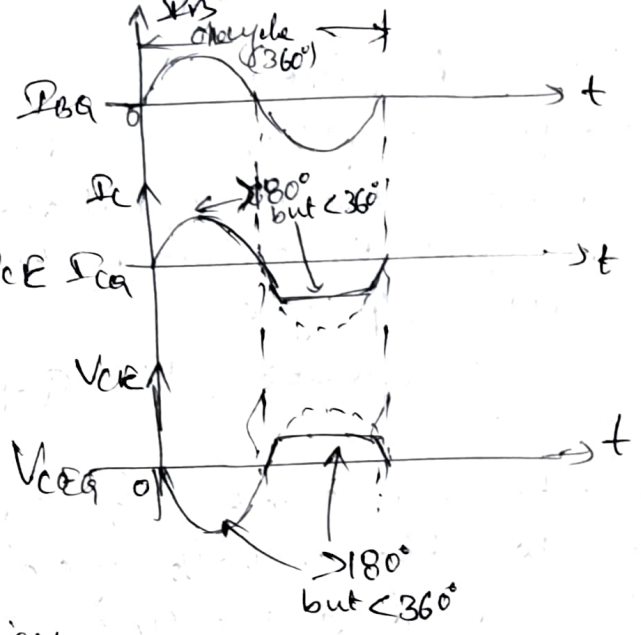 IB
Onecycle
(360°)
IBQ
0
t
IC
>180°
but <360°
CE ICQ
t
VCE
VCEQ
0
t
>180°
but <360°